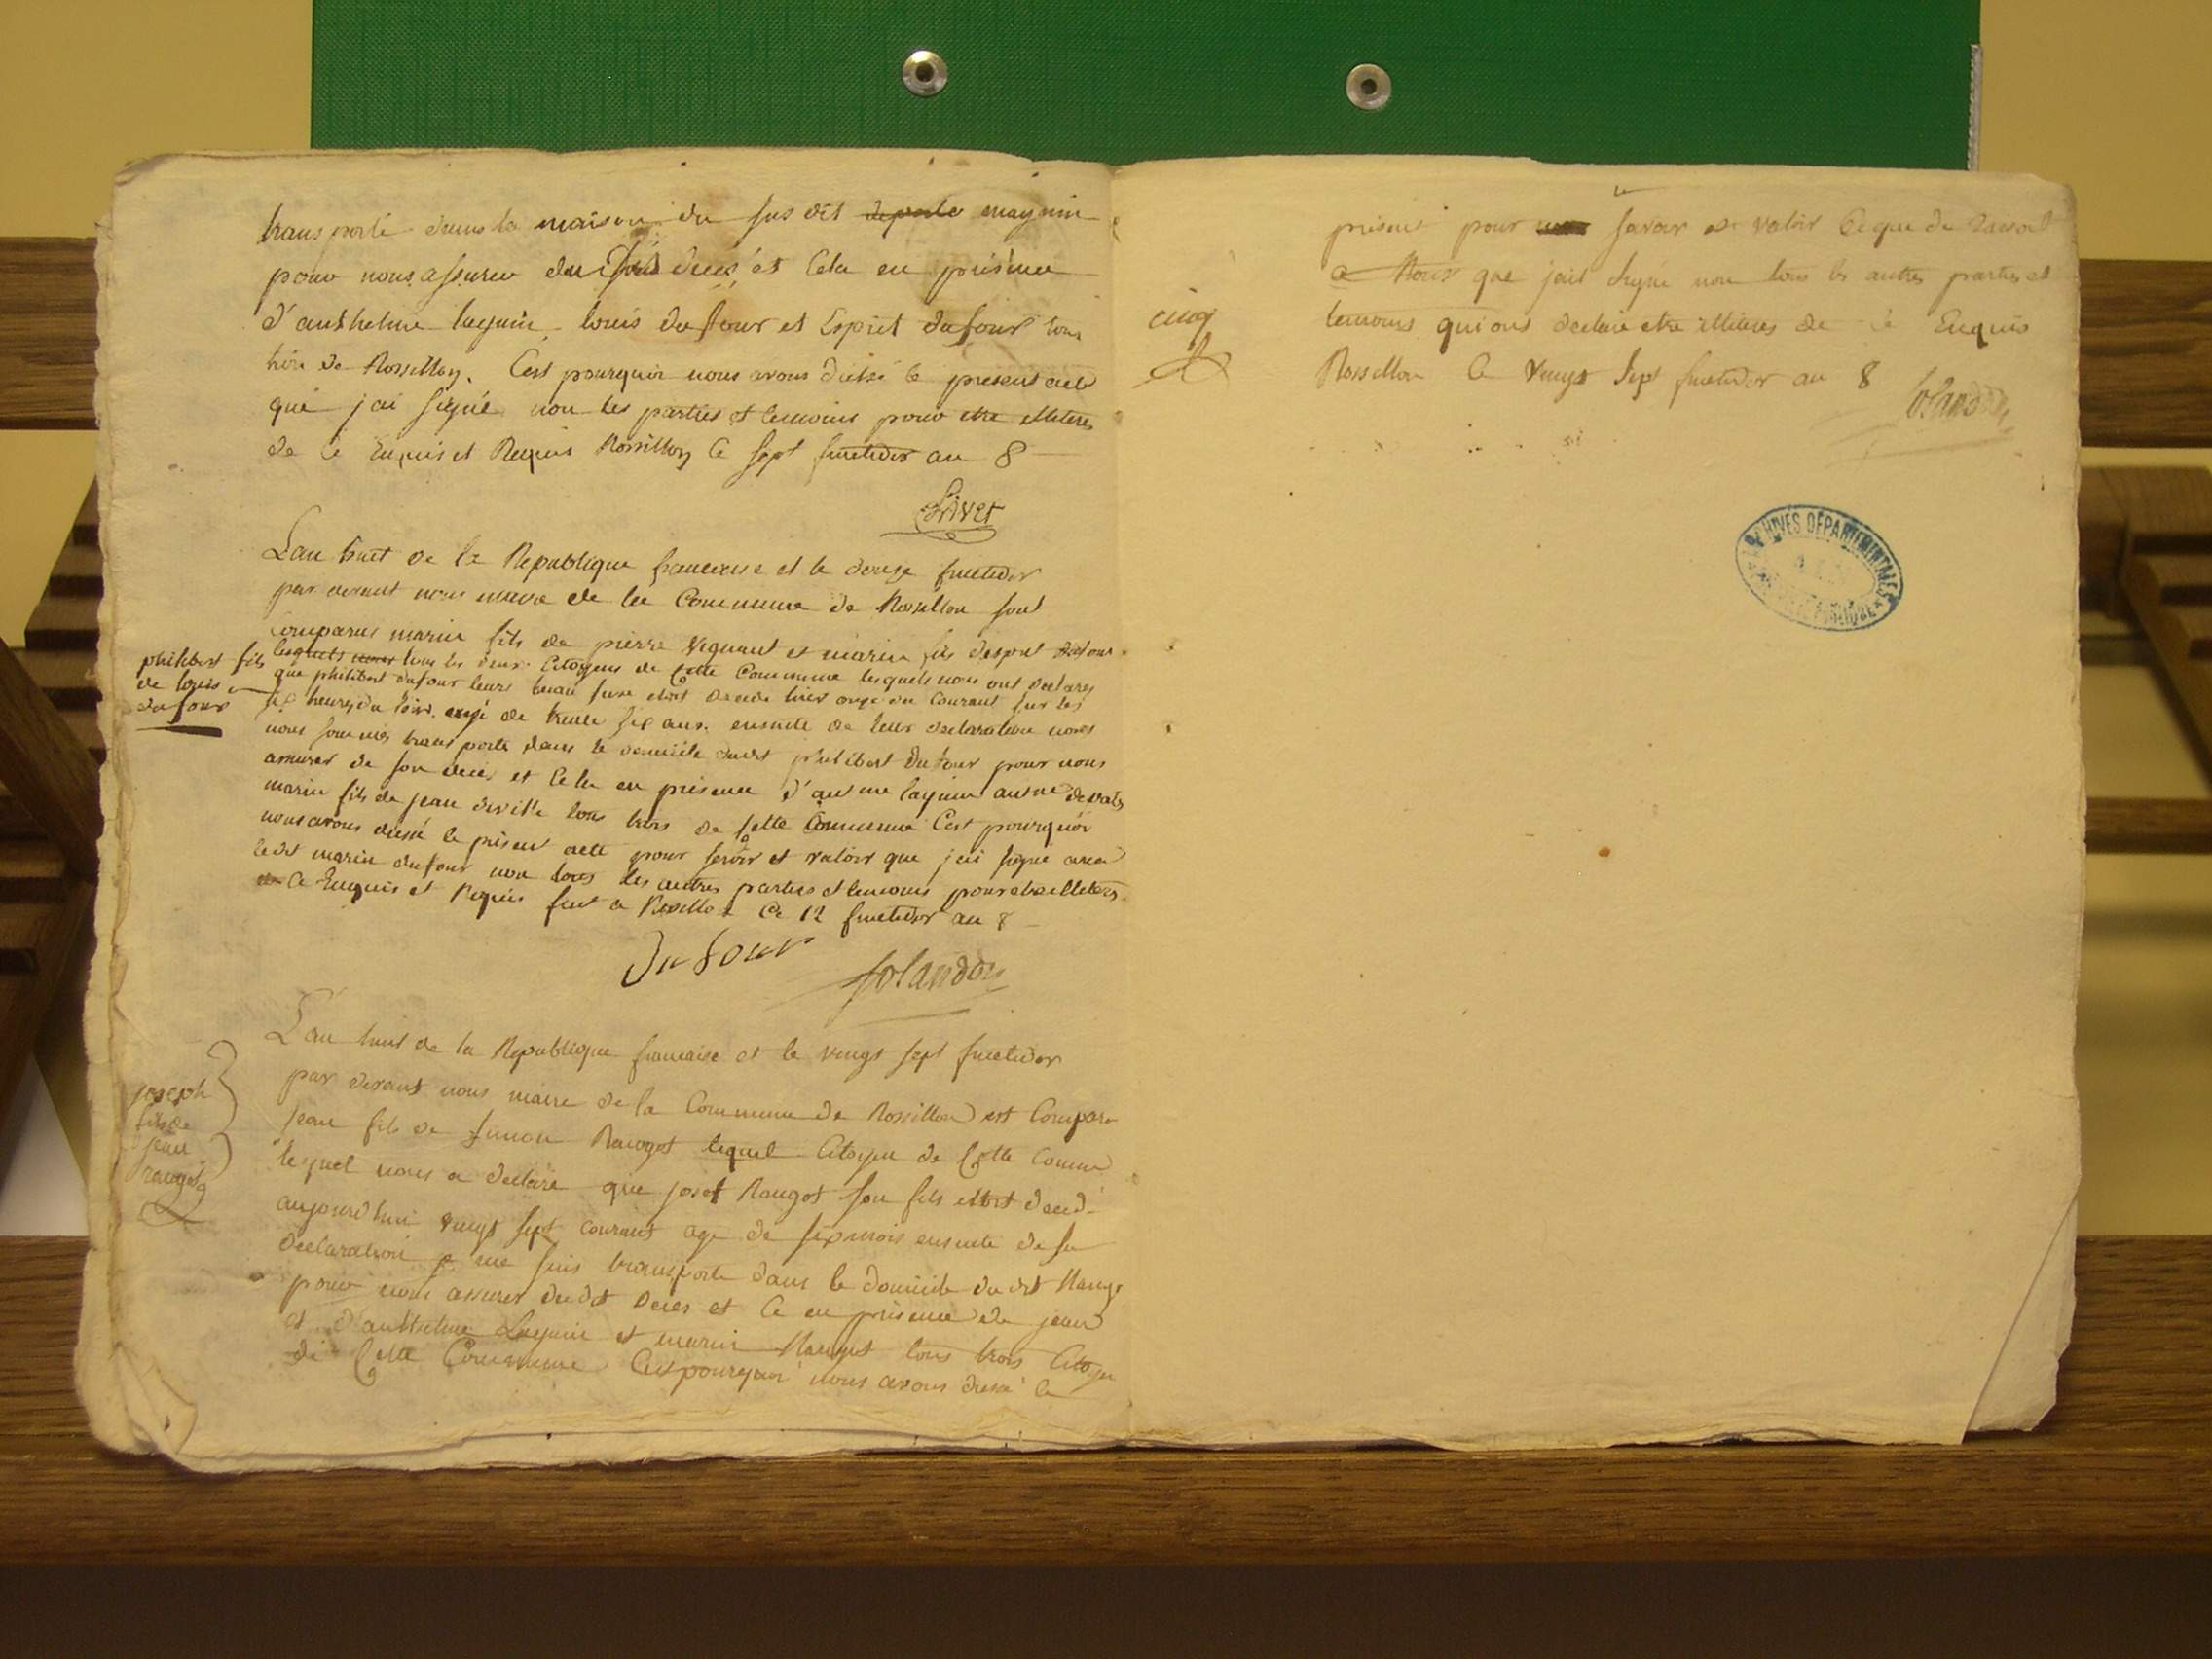 transporté dans la maison du sus dit deposte maynin
pour nous assurer du dit décés et cela en présence
d'anthelme laguin louis dufour et Esprit dufour tous
trois de Rossillon. C'est pourquoi nous avons dressé le present acte
que j'ai signé non les parties et temoins pour etre illiteres
de ce Enquis et Requis Rossillon le sept fructidor an 8
Trivet
L'an huit de la Republique francoise et le douze fructidor
par devant nous maire de la Commune de Rossillon sont
comparus marin fils de pierre Veguant et marin fils d'esprit dufour
lesquels tous les deux Citoyens de Cette Commune lesquels nous ont declares
philibert fils
de louis
dufour
que philibert dufour leurs beau frere etoit decede hier onze du Courant sur les
six heures du soir. angé de trente six ans. ensuite de leur declaration nous
nous sommes transporte dans le domicile dudit philibert Dufour pour nous
assurer de son deces et Cela en presence d'autme laguin autme devals
marin fils de jean deville tous trois de Cette Commune C'est pourquoi
nous avons dressé le present acte pour servir et valoir que j'ai signé avec
le dit marin dufour non tous les autres parties et temoins pour etre illiteres
de Ce Enquis et Requis fait a Rossillon Ce 12 fructidor an 8
Dufour
Solandon
L'an huit de la Republique francaise et le vingt sept fructidor
par devant nous maire de la Commune de Rossillon est Compara
joseph
fils de
jean
raugot
jean fils de Simon Raugot lequel Citoyen de Cette Comm
lequel nous a declaré que josef Raugot son fils etoit deced
aujourd'hui vingt sept courant age de six mois ensuite de sa
declaration je me suis transporte dans le domicile du dit Raugo
pour nous assurer dudit Deces et Ce en presence de jean
et d'anthelme Laguin et marin Raugot tous trois Citoyen
de Cette Commune C'est pourquoi nous avons dressé le
present pour servir et valoir Ce que de raison
a Nous que j'ait signé non tous les autres parties et
cinq
temoins qui ont declaré etre illiteres de ce Enquis
Rossillon le vingt sept fructidor an 8
Solandon
ARCHIVES DÉPARTEMENTALES